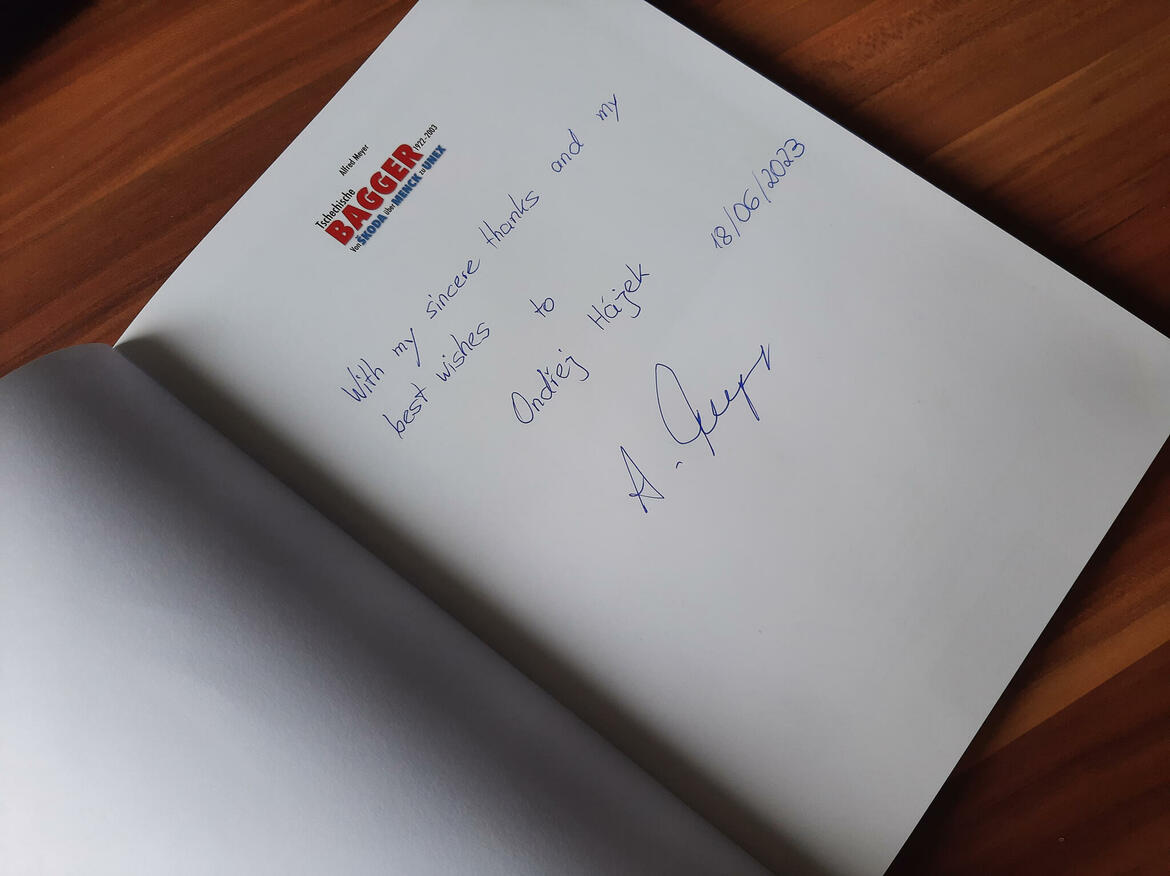 Alfred Meyer
Tschechische
BAGGER 1922-2003
Von ŠKODA über MENCK zu UNEX
With my sincere thanks and my
best wishes to
Ondřej Hájek 18/06/2023
A.